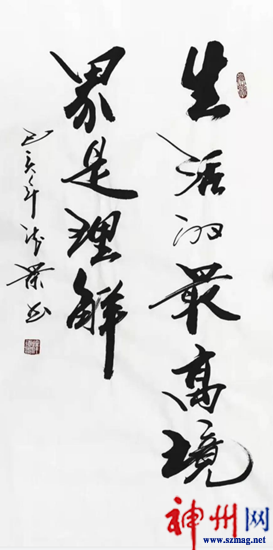 生活的最高境
界是理解
己亥年
神州网
www.szmag.net